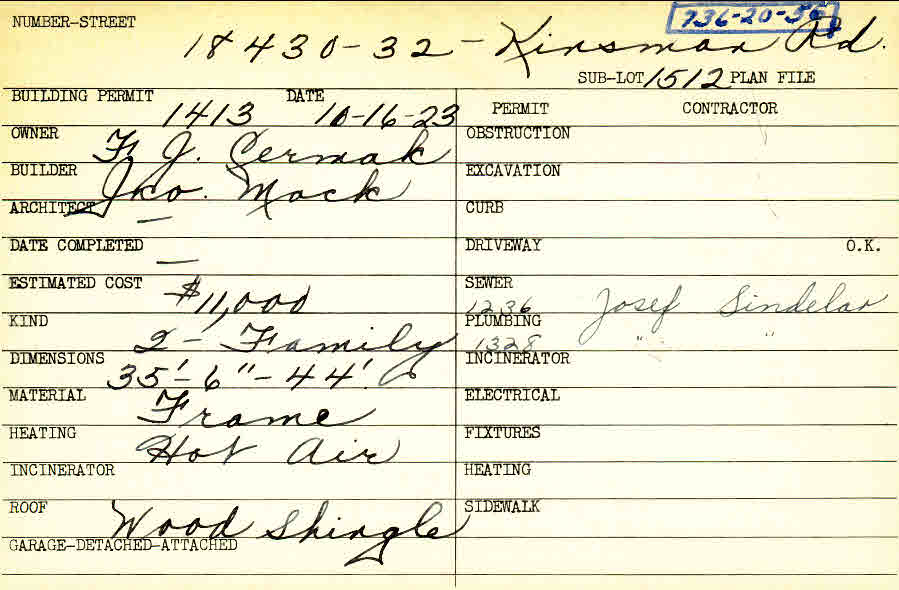 NUMBER-STREET 736-20-56
18430-32 - Kinsman Rd.
SUB-LOT 1512 PLAN FILE
BUILDING PERMIT 1413 DATE 10-16-23
OWNER F. J. Cermak
BUILDER Jno. Mack
ARCHITECT —
DATE COMPLETED —
ESTIMATED COST $11,000
KIND 2 - Family
DIMENSIONS 35'-6"-44'
MATERIAL Frame
HEATING Hot Air
INCINERATOR
ROOF Wood Shingle
GARAGE-DETACHED-ATTACHED
PERMIT CONTRACTOR
OBSTRUCTION
EXCAVATION
CURB
DRIVEWAY O.K.
SEWER 1236 Josef Sindelar
PLUMBING 1328 " "
INCINERATOR
ELECTRICAL
FIXTURES
HEATING
SIDEWALK